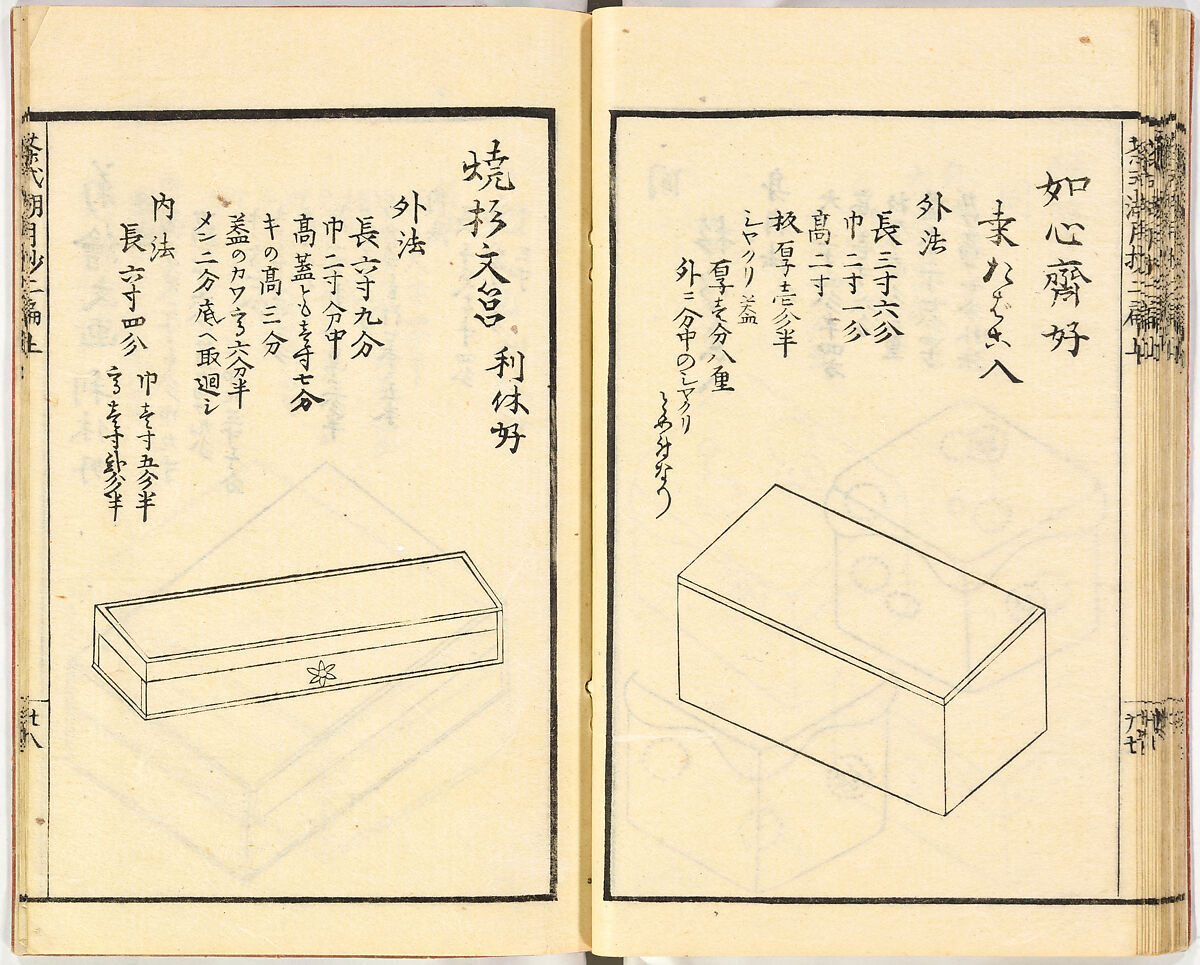 如心齋好
桑たばこ入
外法
長三寸六分
巾二寸一分
高二寸
板厚壱分半
シヤクリ蓋
厚壱分八厘
外ニ二分中のシヤクリ
焼杉文筥 利休好
外法
長六寸九分
巾二寸二分中
高蓋とも壱寸七分
キの高三分
蓋のカワ高六分半
メン二分底ヘ取廻シ
内法
長六寸四分
巾壱寸五分半
茶式湖月抄二編上
廿八